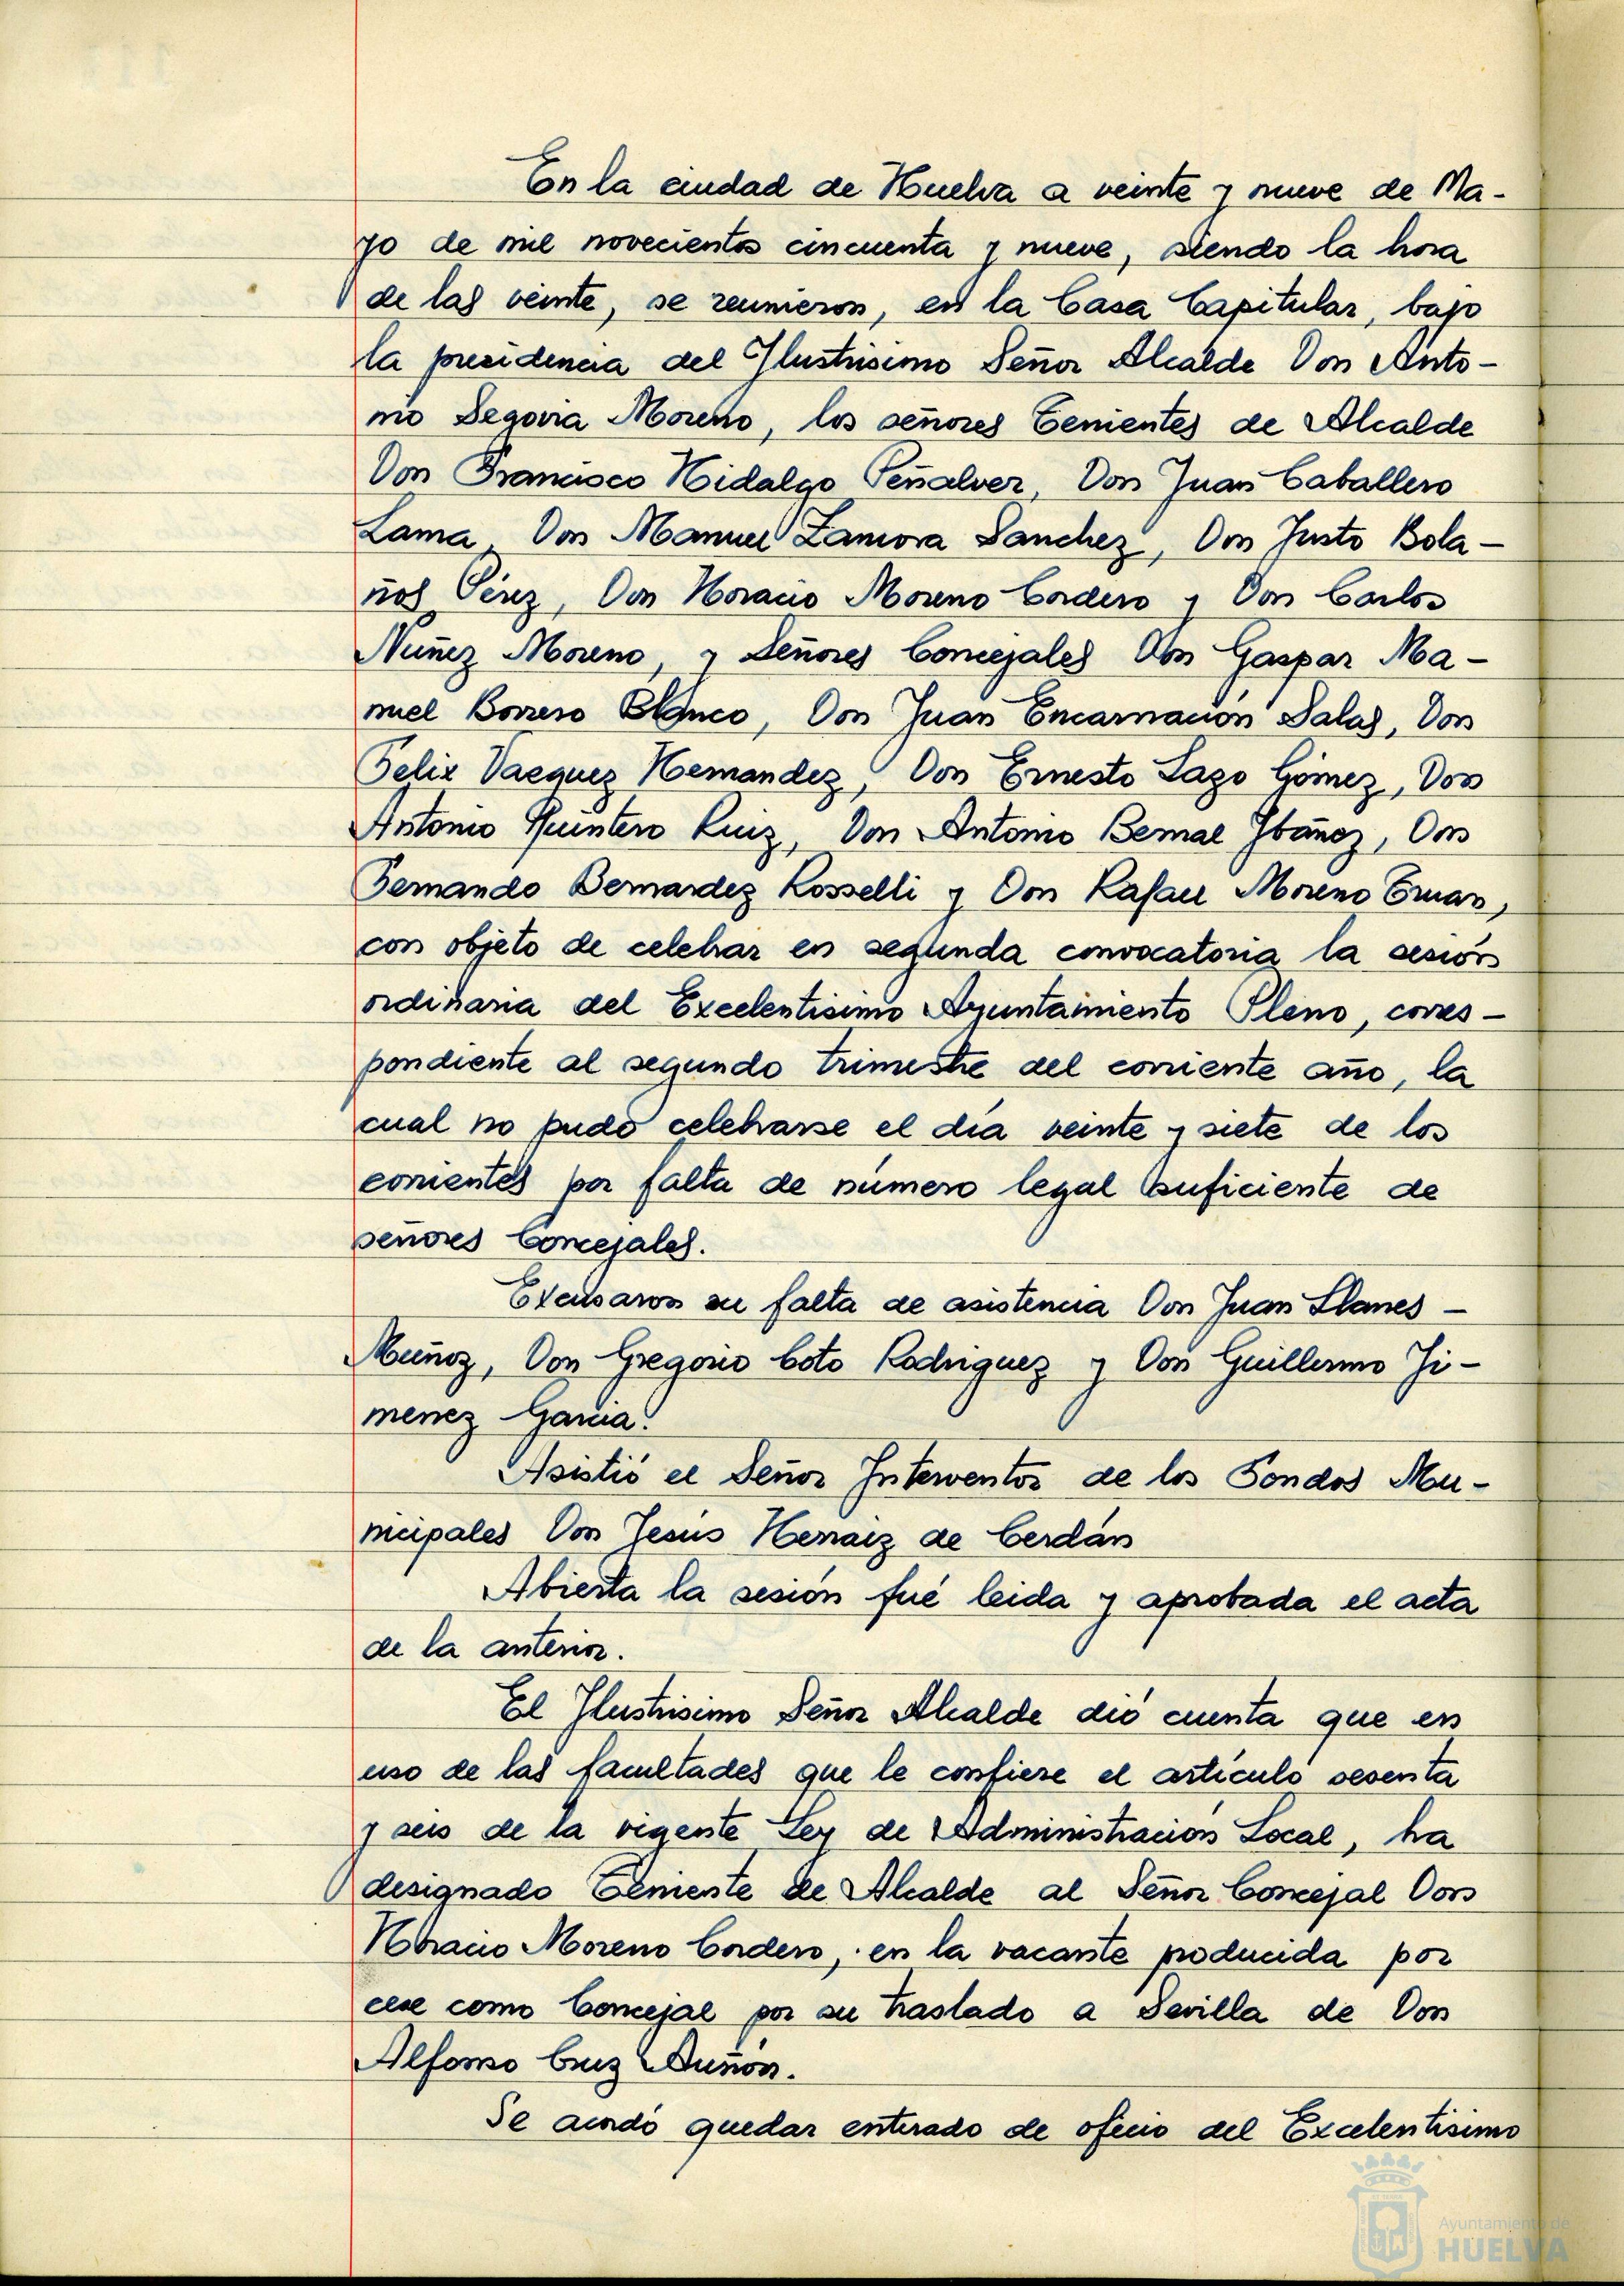 En la ciudad de Huelva a veinte y nueve de Ma-
yo de mil novecientos cincuenta y nueve, siendo la hora
de las veinte, se reunieron, en la Casa Capitular, bajo
la presidencia del Ilustrisimo Señor Alcalde Don Anto-
nio Segovia Moreno, los señores Tenientes de Alcalde
Don Francisco Hidalgo Peñalver, Don Juan Caballero
Lama, Don Manuel Zamora Sanchez, Don Justo Bola-
ños Pérez, Don Horacio Moreno Cordero y Don Carlos
Nuñez Moreno, y Señores Concejales Don Gaspar Ma-
nuel Borrero Blanco, Don Juan Encarnación Salas, Don
Felix Vazquez Hernandez, Don Ernesto Lazo Gómez, Don
Antonio Quintero Ruiz, Don Antonio Bernal Ybañez, Don
Fernando Bernardez Rosselli y Don Rafael Moreno
con objeto de celebrar en segunda convocatoria la sesión
ordinaria del Excelentisimo Ayuntamiento Pleno, corres-
pondiente al segundo trimestre del corriente año, la
cual no pudo celebrarse el día veinte y siete de los
corrientes por falta de número legal suficiente de
señores Concejales.
Excusaron su falta de asistencia Don Juan Llanes-
Muñoz, Don Gregorio Coto Rodriguez y Don Guillermo Ji-
menez Garcia.
Asistió el Señor Interventor de los Fondos Mu-
nicipales Don Jesús Herraiz de Cerdán
Abierta la sesión fué leida y aprobada el acta
de la anterior.
El Ilustrisimo Señor Alcalde dió cuenta que en
uso de las facultades que le confiere el artículo sesenta
y seis de la vigente Ley de Administración Local, ha
designado Teniente de Alcalde al Señor Concejal Don
Horacio Moreno Cordero, en la vacante producida por
cese como Concejal por su traslado a Sevilla de Don
Alfonso Cruz Auñón.
Se acordó quedar enterado de oficio del Excelentisimo
Ayuntamiento de
HUELVA